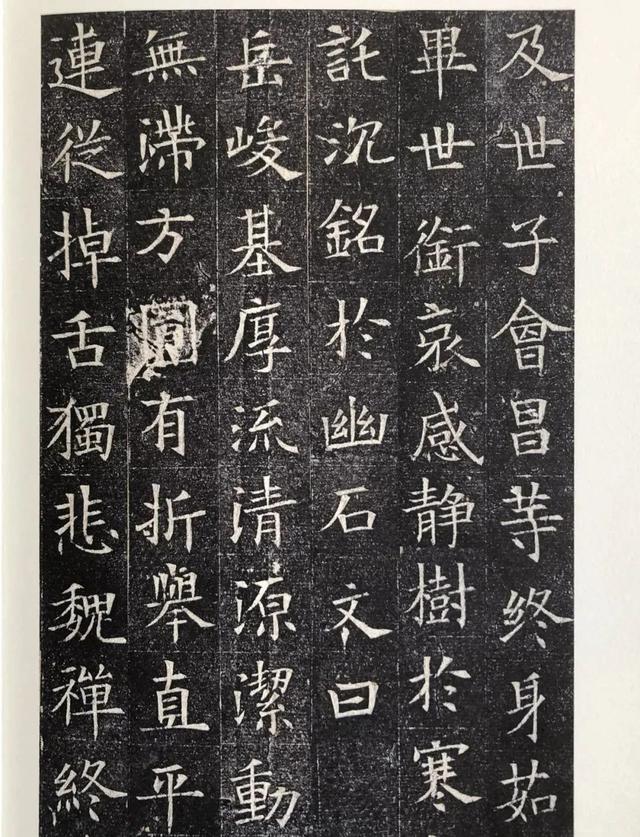 及世子會昌䓁終身茹
畢世銜哀感静樹於寒
託沉銘於幽石文曰
岳峻基厚流清源潔動
無滞方有折舉直平
連從掉舌獨悲魏禪終